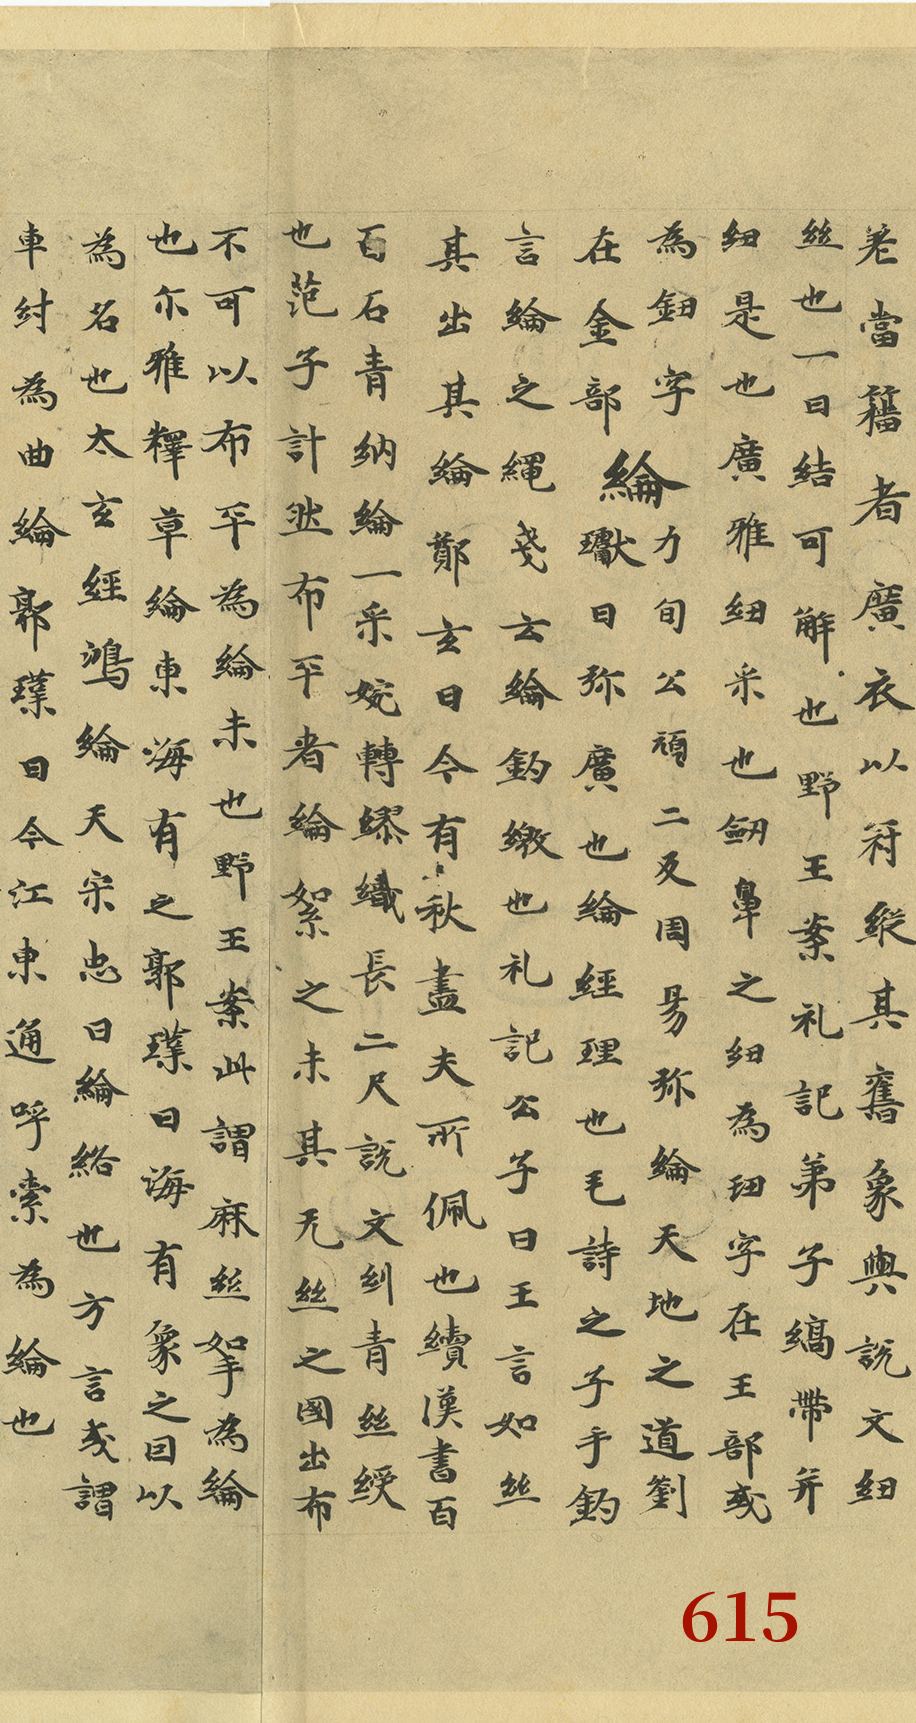 老當籍者廣衣以符縱其舊象輿説文紐
絲也一曰結可解也野王案礼記弟子縞帶并
紐是也廣雅紐采也劒鼻之紐為玵字在王部或
為鈕字在金部
綸力旬公頑二反周易弥綸天地之道劉
瓛曰弥廣也綸經理也毛詩之子手釣
言綸之繩戔云綸釣繳也礼記公子曰王言如絲
其出其綸鄭玄曰今有秋盡夫所佩也續漢書百
百石青納綸一采婉轉繆織長二尺説文糾青絲綬
也范子計然布平者綸絮之未其无絲之國出布
不可以布平為綸未也野王案此謂麻絲絮為綸
也尒雅釋草綸東海有之郭璞曰海有象之因以
為名也太玄經鴻綸天宋忠曰綸絡也方言或謂
車紂為曲綸郭璞曰今江東通呼索為綸也
615